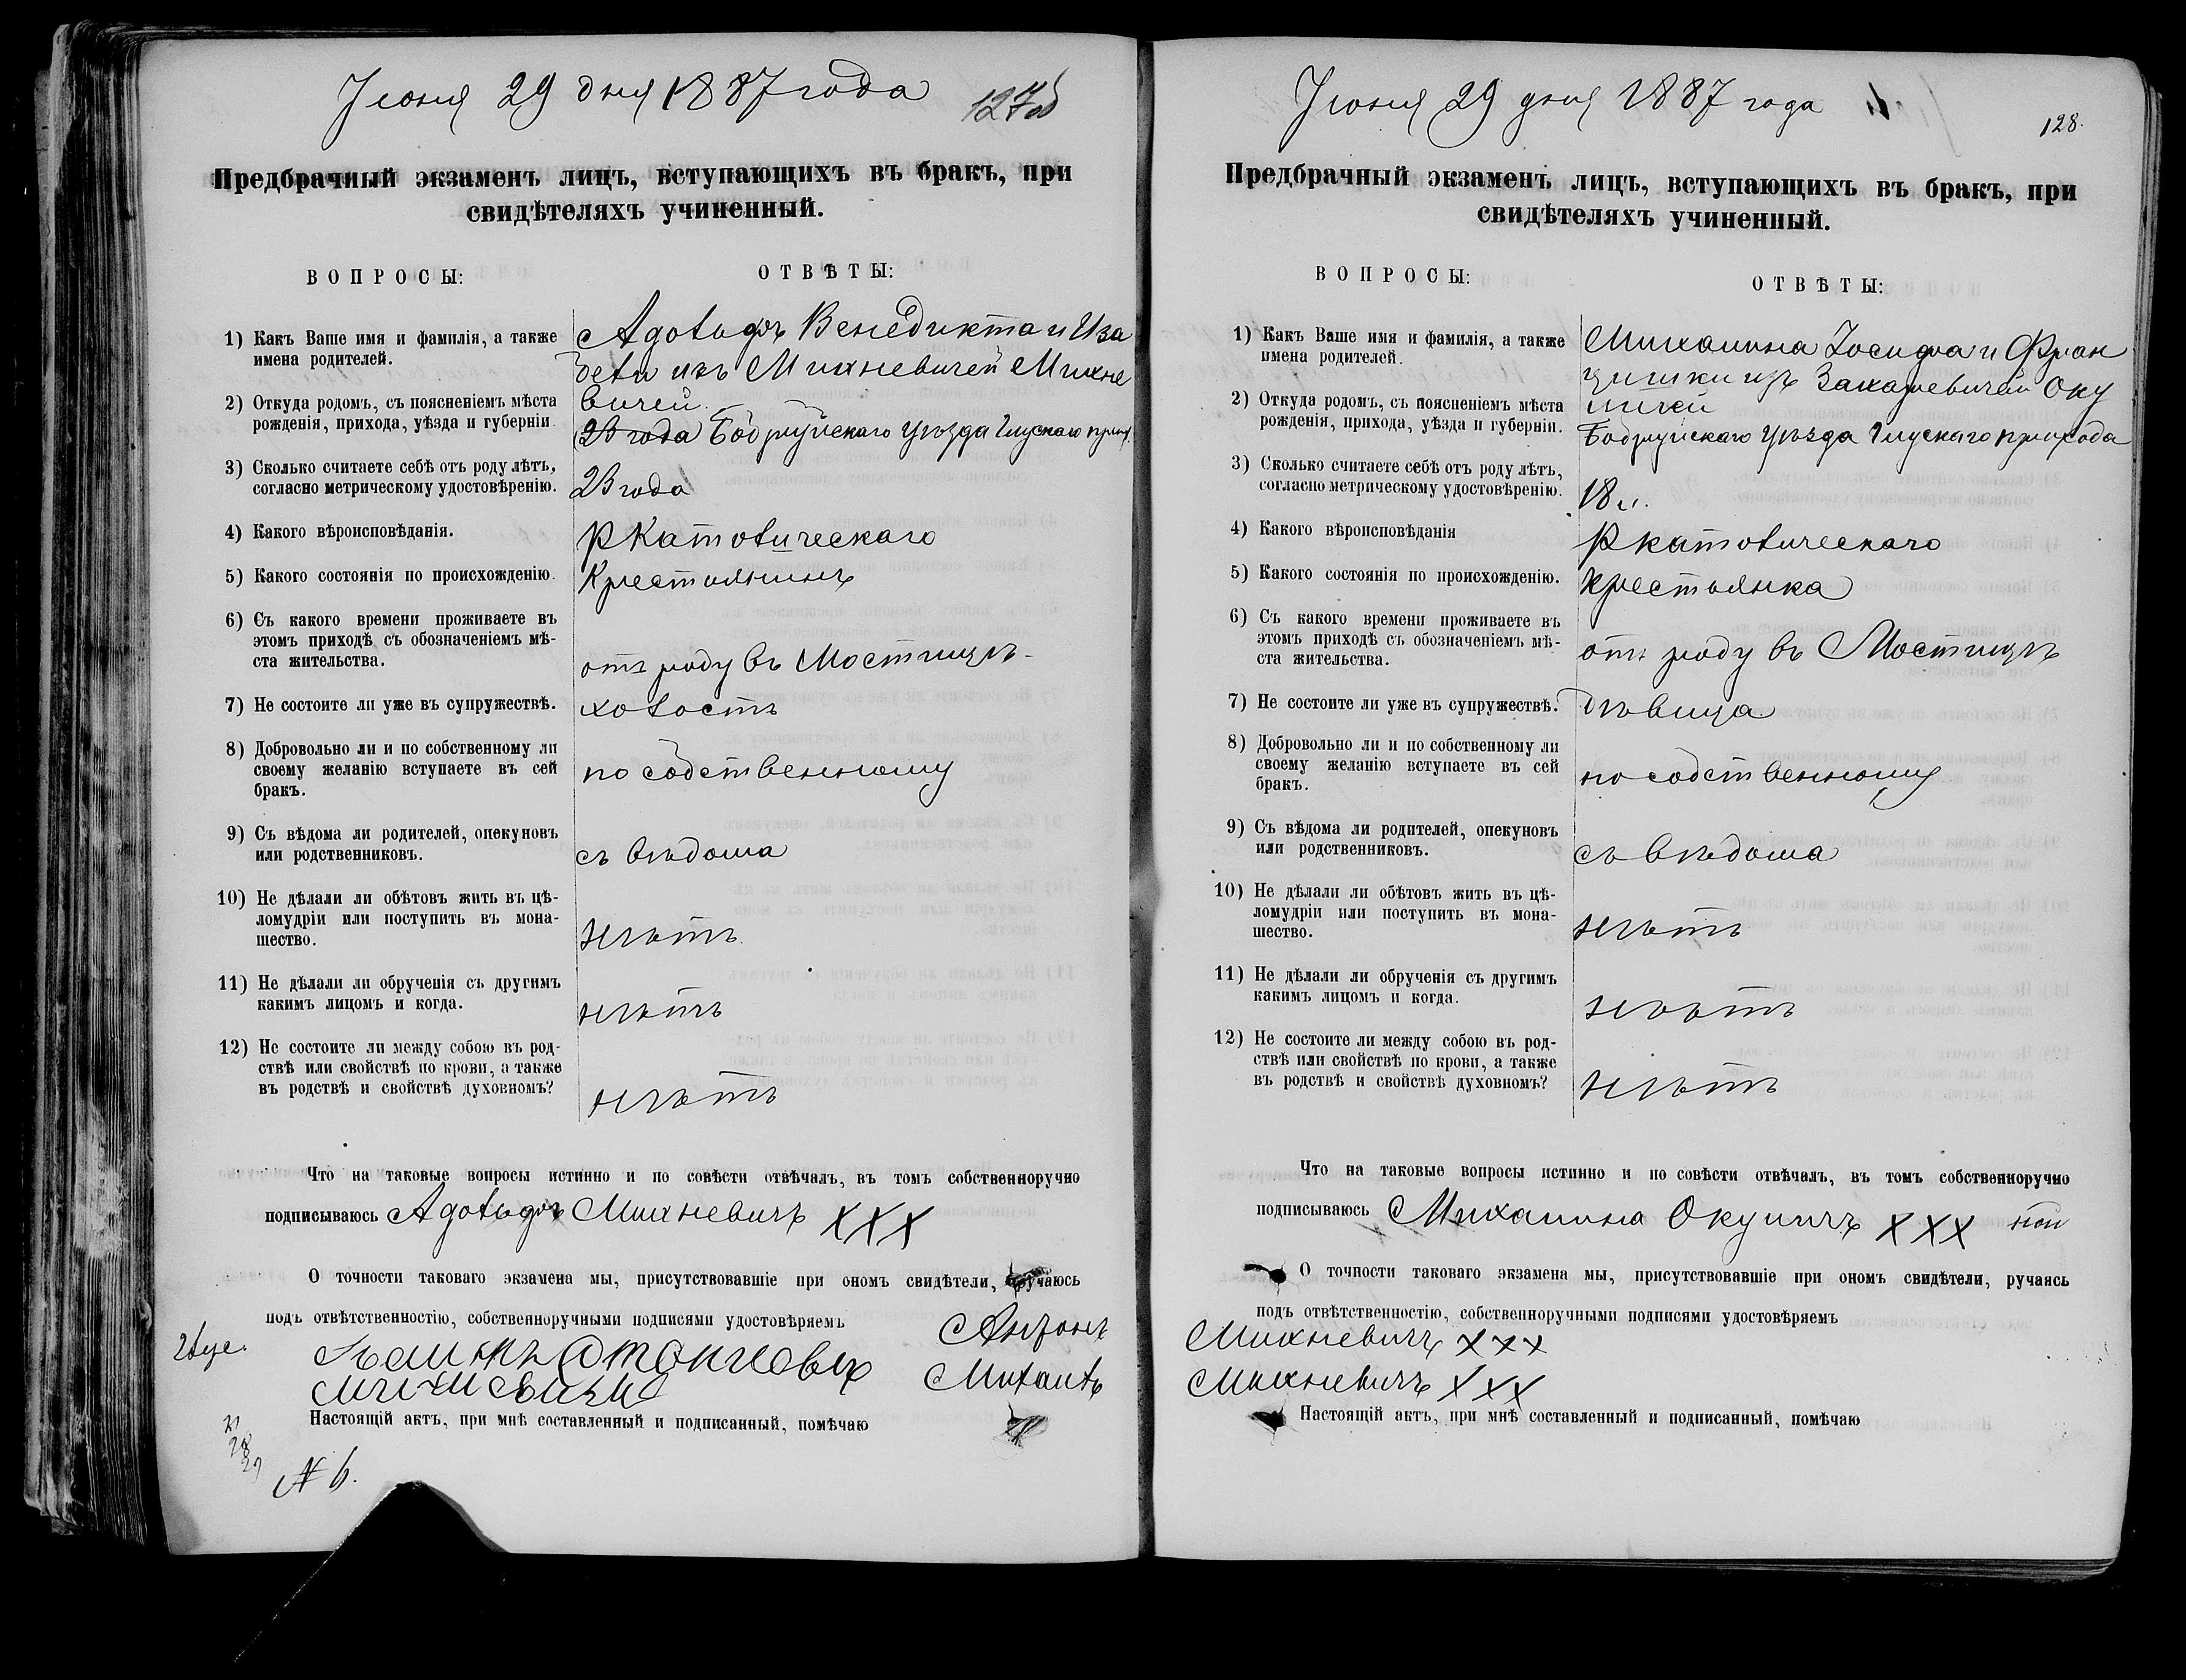 Іюня 29 дня 1887 года
127об
Предбрачный экзаменъ лицъ, вступающихъ въ бракъ, при
свидѣтеляхъ учиненный.
ВОПРОСЫ:
ОТВѢТЫ:
1) Какъ Ваше имя и фамилія, а также
имена родителей.
Адольфъ Венедикта и Иза
бели изъ Михневичей Михне
вичей
2) Откуда родомъ, съ поясненіемъ мѣста
рожденія, прихода, уѣзда и губерніи.
(23 года) Бобруйскаго уѣзда Глускаго прих.
3) Сколько считаете себѣ отъ роду лѣтъ,
согласно метрическому удостовѣренію.
23 года
4) Какого вѣроисповѣданія.
Р Католическаго
5) Какого состоянія по происхожденію.
Крестьянинъ
6) Съ какого времени проживаете въ
этомъ приходѣ съ обозначеніемъ мѣ-
ста жительства.
отъ роду въ Мостицѣ
7) Не состоите ли уже въ супружествѣ.
холостъ
8) Добровольно ли и по собственному ли
своему желанію вступаете въ сей
бракъ.
по собственному
9) Съ вѣдома ли родителей, опекуновъ
или родственниковъ.
съ вѣдома
10) Не дѣлали ли обѣтовъ жить въ цѣ-
ломудріи или поступить въ мона-
шество.
нѣтъ
11) Не дѣлали ли обрученія съ другимъ
какимъ лицомъ и когда.
нѣтъ
12) Не состоите ли между собою въ род-
ствѣ или свойствѣ по крови, а также
въ родствѣ и свойствѣ духовномъ?
нѣтъ
Что на таковые вопросы истинно и по совѣсти отвѣчалъ, въ томъ собственноручно
подписываюсь Адольфъ Михневичъ ХХХ
О точности таковаго экзамена мы, присутствовавшіе при ономъ свидѣтели, ручаюсь
подъ отвѣтственностію, собственноручными подписями удостовѣряемъ
Антонъ
Михаилъ
Настоящій актъ, при мнѣ составленный и подписанный, помѣчаю
27
28
29
№ 6.
Іюня 29 дня 1887 года
128.
Предбрачный экзаменъ лицъ, вступающихъ въ бракъ, при
свидѣтеляхъ учиненный.
ВОПРОСЫ:
ОТВѢТЫ:
1) Какъ Ваше имя и фамилія, а также
имена родителей.
Михалина Іосифа и Фран
цишки изъ Захаревичей Оку
личей
2) Откуда родомъ, съ поясненіемъ мѣста
рожденія, прихода, уѣзда и губерніи.
Бобруйскаго уѣзда Глускаго прихода
3) Сколько считаете себѣ отъ роду лѣтъ,
согласно метрическому удостовѣренію.
18 л.
4) Какого вѣроисповѣданія
Р католическаго
5) Какого состоянія по происхожденію.
крестьянка
6) Съ какого времени проживаете въ
этомъ приходѣ съ обозначеніемъ мѣ-
ста жительства.
отъ роду въ Мостицѣ
7) Не состоите ли уже въ супружествѣ.
дѣвица
8) Добровольно ли и по собственному ли
своему желанію вступаете въ сей
бракъ.
по собственному
9) Съ вѣдома ли родителей, опекуновъ
или родственниковъ.
съ вѣдома
10) Не дѣлали ли обѣтовъ жить въ цѣ-
ломудріи или поступить въ мона-
шество.
нѣтъ
11) Не дѣлали ли обрученія съ другимъ
какимъ лицомъ и когда.
нѣтъ
12) Не состоите ли между собою въ род-
ствѣ или свойствѣ по крови, а также
въ родствѣ и свойствѣ духовномъ?
нѣтъ
Что на таковые вопросы истинно и по совѣсти отвѣчалъ, въ томъ собственноручно
подписываюсь Михалина Окуличъ ХХХ
О точности таковаго экзамена мы, присутствовавшіе при ономъ свидѣтели, ручаясь
подъ отвѣтственностію, собственноручными подписями удостовѣряемъ
Михневичъ ххх
Михневичъ ХХХ
Настоящій актъ, при мнѣ составленный и подписанный, помѣчаю